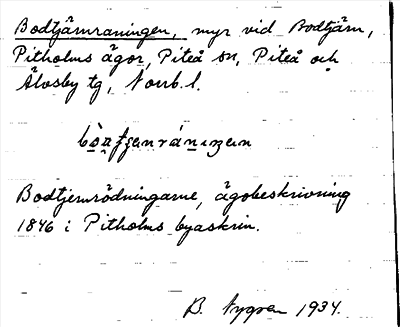 Bodtjärnraningen, myr vid Bodtjärn,
Pitholms ägor, Piteå sn, Piteå och
Älvsby tg, Norrb. l.
Bodtjernrödningarne, ägobeskrivning
1846 i Pitholms byaskrin.
B. Nygren 1934.